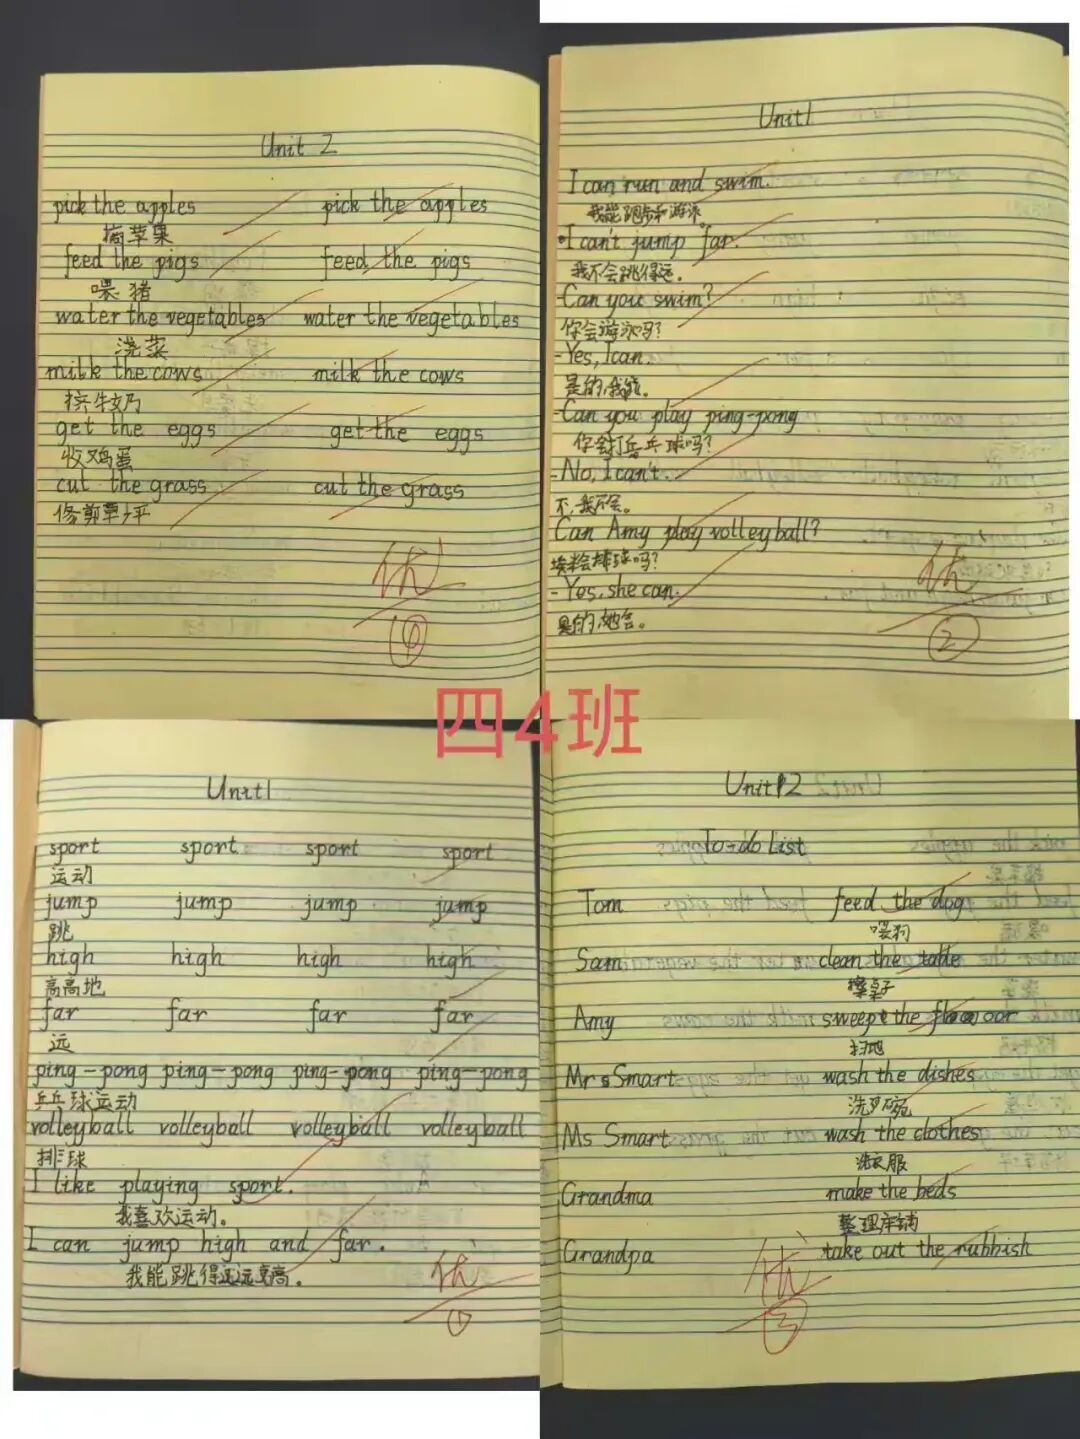 Unit 2
pick the apples pick the apples
摘苹果
feed the pigs feed the pigs
喂猪
water the vegetables water the vegetables
浇菜
milk the cows milk the cows
挤牛奶
get the eggs get the eggs
收鸡蛋
cut the grass cut the grass
修剪草坪
优
④
Unit1
I can run and swim.
我能跑步和游泳。
I can't jump far.
我不会跳得远。
-Can you swim?
你会游泳吗?
-Yes, I can.
是的,我能。
-Can you play ping-pong
你会打乒乓球吗?
-No, I can't.
不,我不会。
Can Amy play volleyball?
埃米会排球吗?
-Yes, she can.
是的,她会。
优
②
四4班
Unit1
sport sport sport sport
运动
jump jump jump jump
跳
high high high high
高高地
far far far far
远
ping-pong ping-pong ping-pong ping-pong
乒乓球运动
volleyball volleyball volleyball volleyball
排球
I like playing sport.
我喜欢运动。
I can jump high and far.
我能跳得远高。
优
①
Unit 2
To-do List
Tom feed the dog
喂狗
Sam clean the table
擦桌子
Amy sweep the floor
扫地
Mrs Smart wash the dishes
洗碗
Ms Smart wash the clothes
洗衣服
Grandma make the beds
整理床铺
Grandpa take out the rubbish
优
③